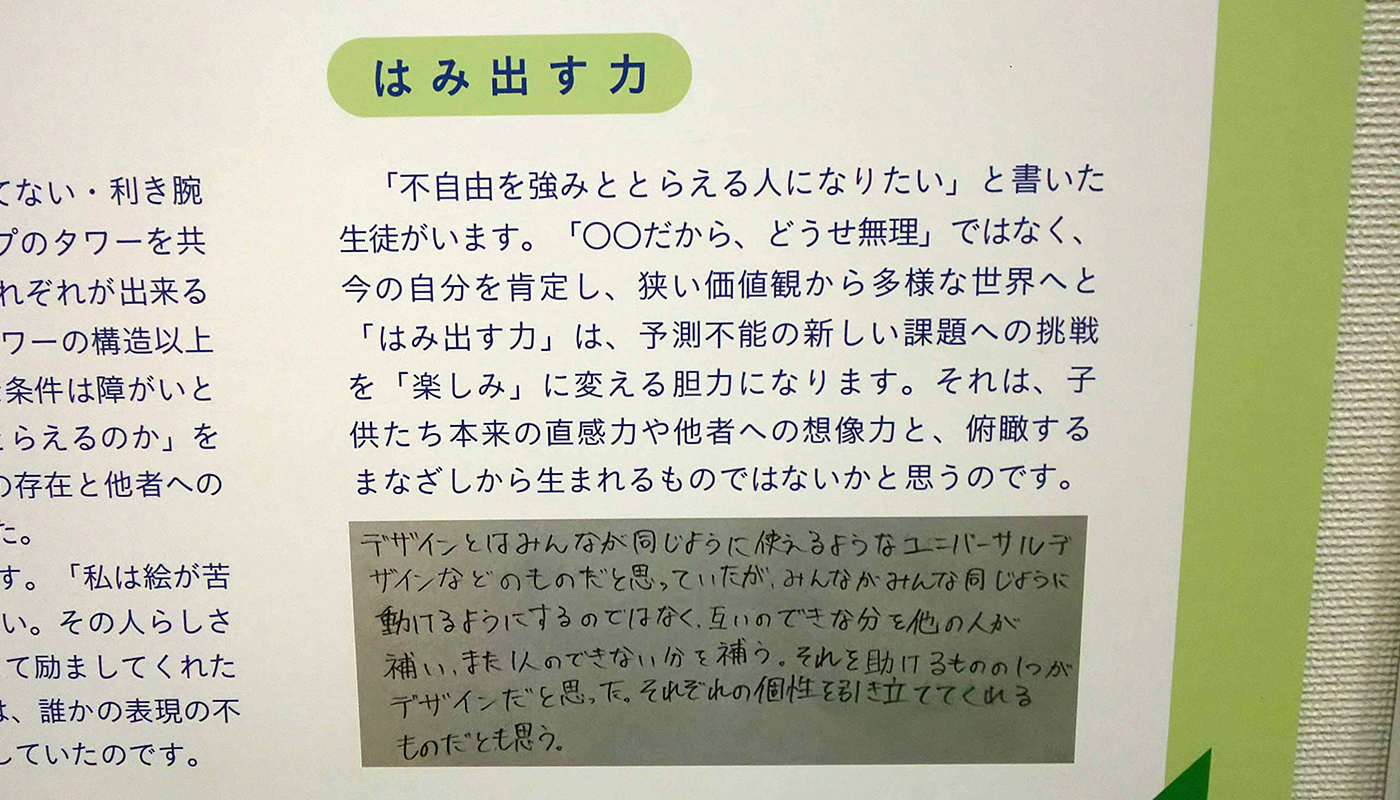 てない・利き腕
プのタワーを共
れぞれが出来る
ワーの構造以上
条件は障がいと
とらえるのか」を
の存在と他者への
た。
す。「私は絵が苦
い。その人らしさ
て励ましてくれた
は、誰かの表現の不
していたのです。
はみ出す力
「不自由を強みととらえる人になりたい」と書いた
生徒がいます。「〇〇だから、どうせ無理」ではなく、
今の自分を肯定し、狭い価値観から多様な世界へと
「はみ出す力」は、予測不能の新しい課題への挑戦
を「楽しみ」に変える胆力になります。それは、子
供たち本来の直感力や他者への想像力と、俯瞰する
まなざしから生まれるものではないかと思うのです。
デザインとはみんなが同じように使えるようなユニバーサルデ
ザインなどのものだと思っていたが、みんながみんな同じように
動けるようにするのではなく、互いのできな分を他の人が
補い、また1人のできない分を補う。それを助けるものの1つが
デザインだと思った。それぞれの個性を引き立ててくれる
ものだとも思う。